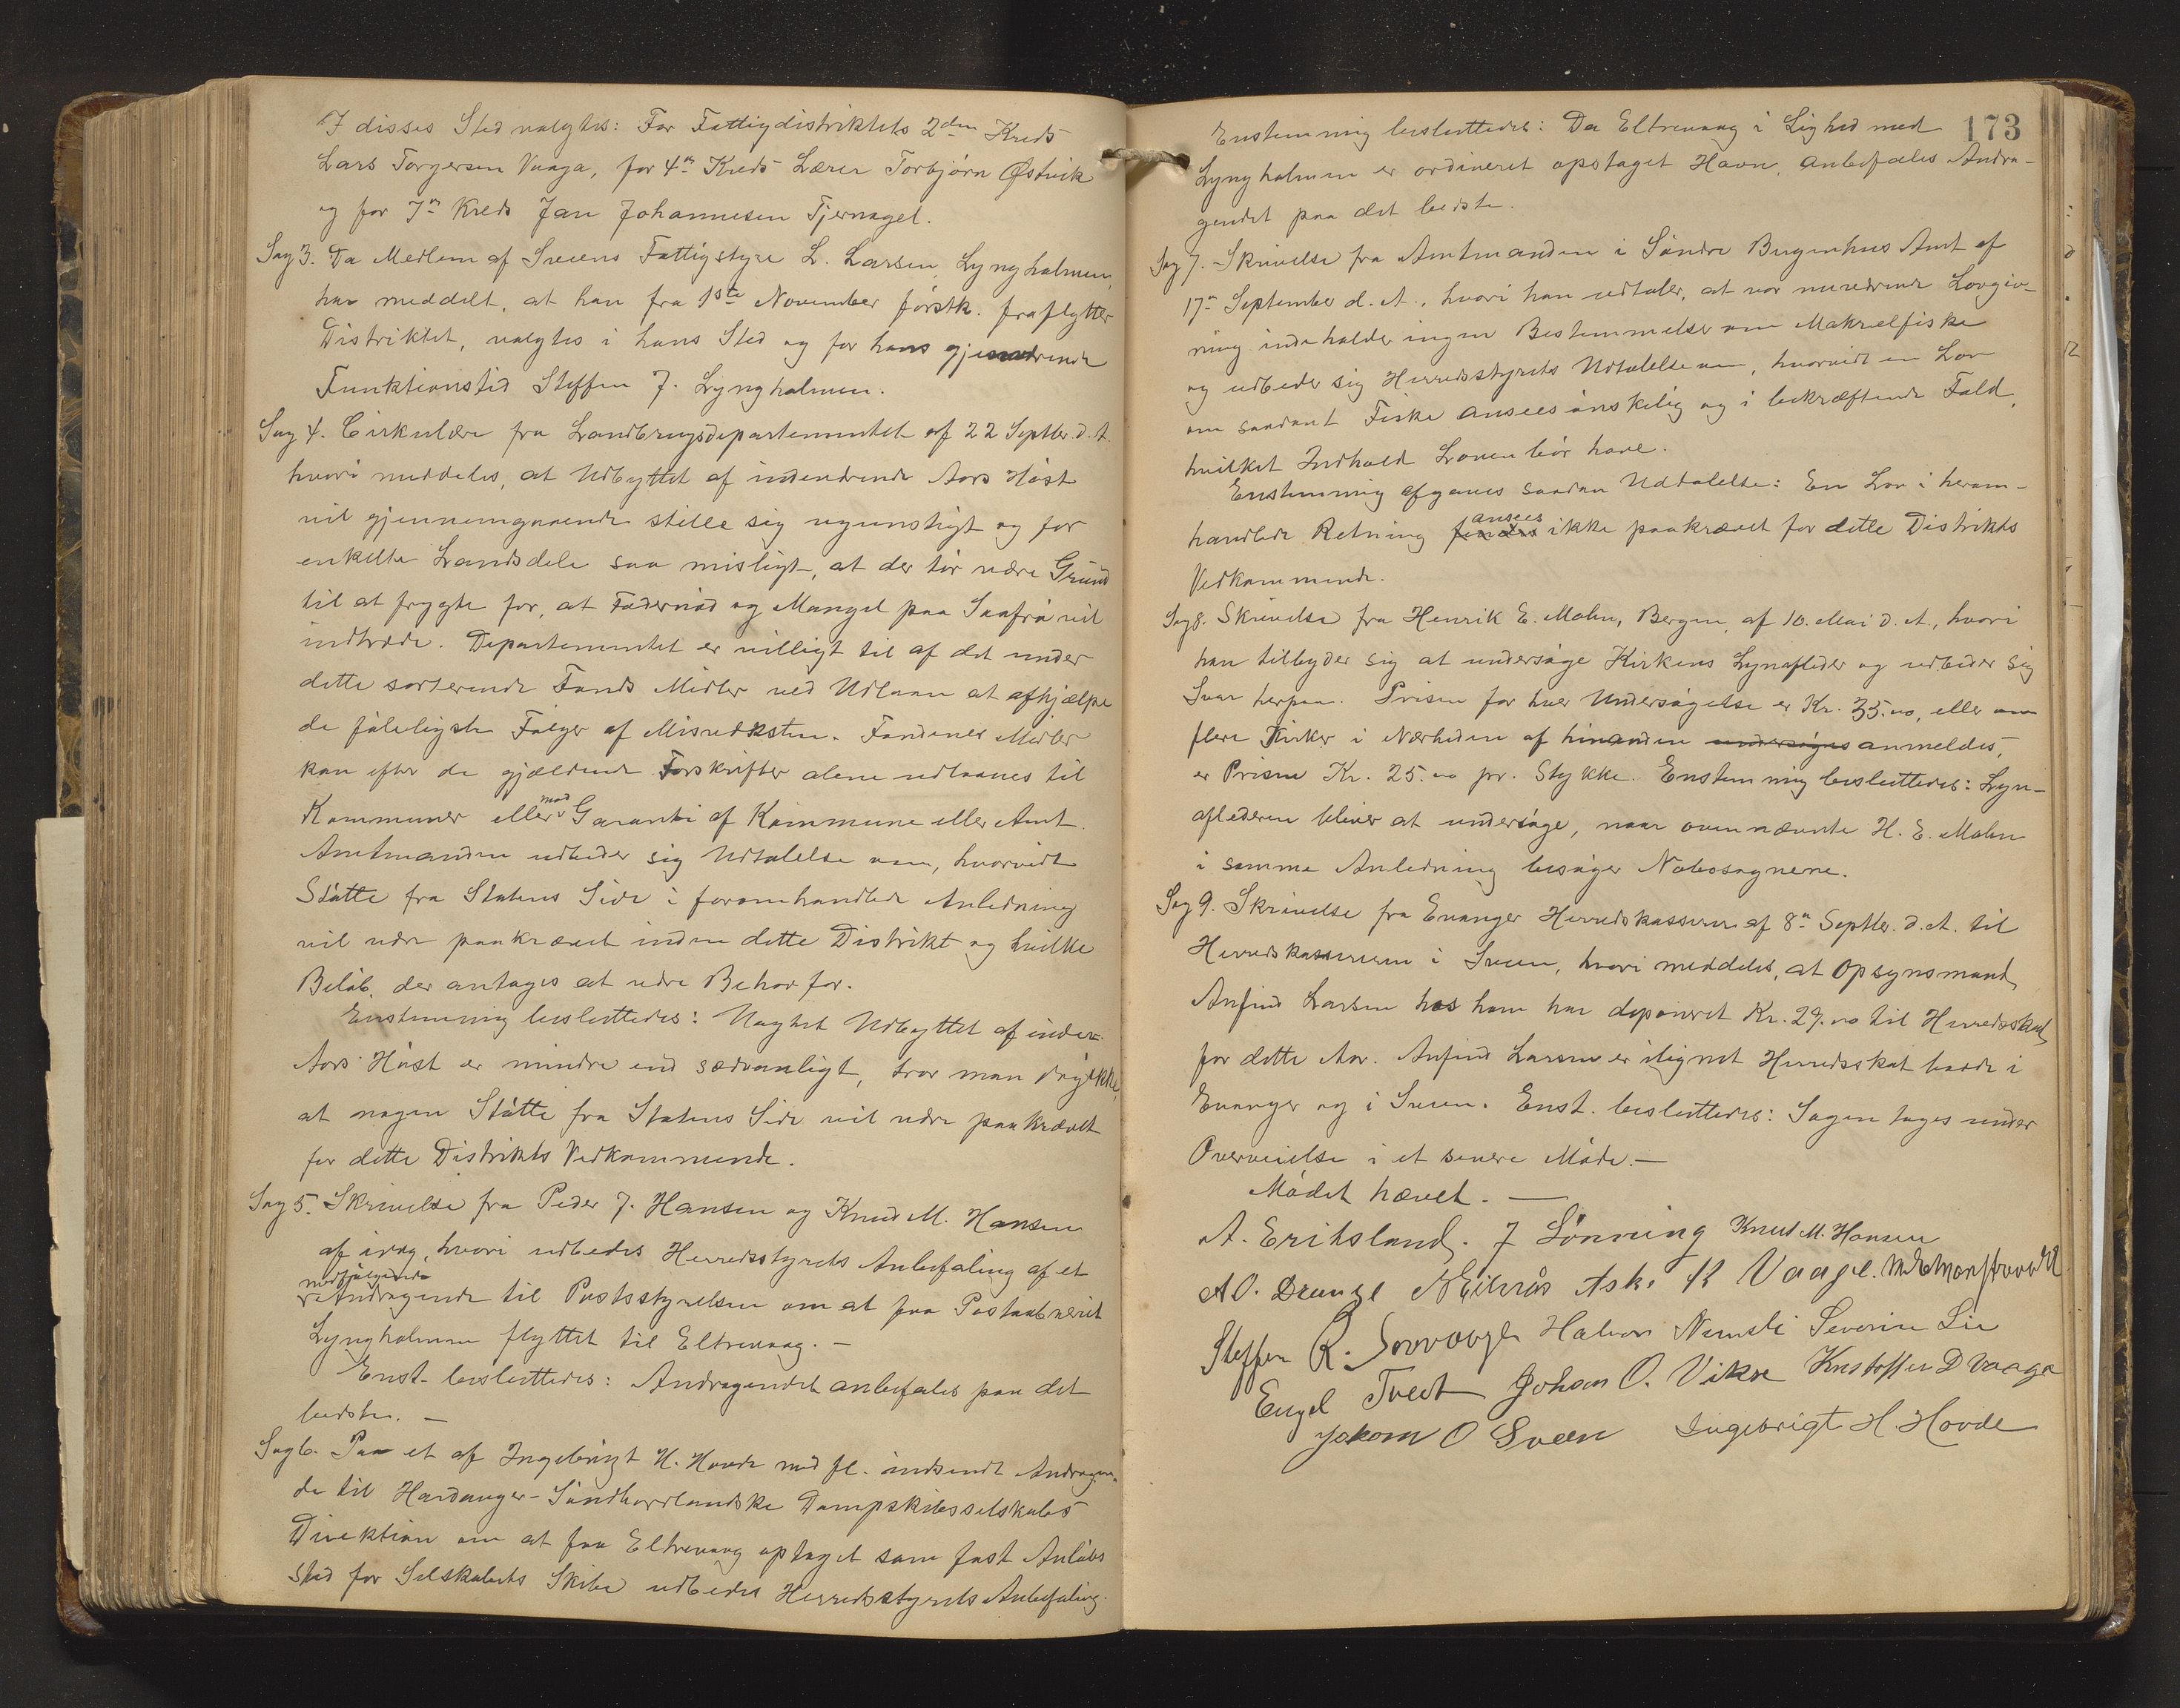 I disses Sted valgtes: For Fattigdistriktets 2den Kreds
Lars Torgersen Vaaga, for 4n Kreds Lærer Torbjörn Østvik
og for 7n Kreds Jan Johannesen Tjernagel.
Sag 3. Da Medlem af Sveens Fattigstyre L. Larsen, Lyngholmen,
har meddelt, at han fra 1ste November förstk. fraflytter
Distriktet, valgtes i hans Sted og for hans gjenværende
Funktionstid Steffen J. Lyngholmen.
Sag 4. Cirkulære fra Landbrugsdepartementet af 22 Septbr. d. A.
hvori meddeles, at Udbyttet af indeværende Aars Höst
vil gjennemgaaende stille sig ugunstigt og for
enkelte Landsdele saa misligt, at der tör være Grund
til at frygte for, at Fodernöd og Mangel paa Saafrö vil
indtræde. Departementet er villigt til af det under
dette sorterende Fonds Midler ved Udlaan at afhjælpe
de föleligste Fölger af Misvæksten. Fondenes Midler
kan efter de gjældende Forskrifter alene udlaanes til
Kommuner eller mod Garanti af Kommune eller Amt.
Amtmanden udbeder sig Udtalelse om, hvorvidt
Stötte fra Statens Side i foromhandlede Anledning
vil være paakrævet inden dette Distrikt og hvilke
Belöb, der antages at være Behov for.
Enstemmig besluttedes: Uagtet Udbyttet af indev.
Aars Höst er mindre end sædvanligt, tror man dog ikke,
at nogen Stötte fra Statens Side vil være paakrævet
for dette Distrikts Vedkommende.
Sag 5. Skrivelse fra Peder J. Hansen og Knud M. Hansen
af idag, hvori udbedes Herredsstyrets Anbefaling af et
medfölgende Andragende til Poststyrelsen om at faa Postaabneriet
Lyngholmen flyttet til Eltrevaag. —
Enst. besluttedes: Andragendet anbefales paa det
bedste. —
Sag 6. Paa et af Ingebrigt H. Hovde med fl. indsendt Andragen-
de til Hardanger-Söndhordlandske Dampskibsselskabs
Direktion om at faa Eltrevaag optaget som fast Anlöbs
sted for Selskabets Skibe udbedes Herredsstyrets Anbefaling.
173
Enstemmig besluttedes: Da Eltrevaag i Lighed med
Lyngholmen er ordineret opstaget Havn, anbefales Andra-
gendet paa det bedste.
Sag 7. Skrivelse fra Amtmanden i Söndre Bergenhus Amt af
17n September d. A., hvori han udtaler, at vor nuværende Lovgiv-
ning indeholder ingen Bestemmelser om Makrelfiske
og udbeder sig Herredsstyrets Udtalelse om, hvorvidt en Lov
om saadant Fiske ansees önskelig og i bekræftende Fald,
hvilket Indhold Loven bör have.
Enstemmig afgaves saadan Udtalelse: En Lov i herom-
handlede Retning findes ansees ikke paakrævet for dette Distrikts
Vedkommende.
Sag 8. Skrivelse fra Henrik E. Mohn, Bergen, af 10. Mai d. A., hvori
han tilbyder sig at undersöge Kirkens Lynafleder og udbeder sig
Svar herpaa. Prisen for hver Undersögelse er Kr. 35.00, eller om
flere Kirker i Nærheden af hinanden undersöges anmeldes,
er Prisen Kr. 25.00 pr. Stykke. Enstemmig besluttedes: Lyn-
aflederen bliver at undersöge, naar ovennævnte H. E. Mohn
i samme Anledning besöger Nabosognerne.
Sag 9. Skrivelse fra Evanger Herredskasserer af 8n Septbr. d. A. til
Herredskassereren i Sveen, hvori meddeles, at Opsynsmand
Anfind Larsen hos ham har deponeret Kr. 29.00 til Herredsskat
for dette Aar. Anfind Larsen er ilignet Herredsskat baade i
Evanger og i Sveen. Enst. besluttedes: Sagen tages under
Overveielse i et senere Möde. —
Mödet hævet. —
A. Eriksland. J Lönning Knud M. Hansen
A O. Drange Aske K Vaage.
Steffen R. Halvor Nernsti Severin Lie
Engel Tveit Johan O. Vikse Kristoffer D Vaage
Johan O Sveen Ingebrigt H. Hovde